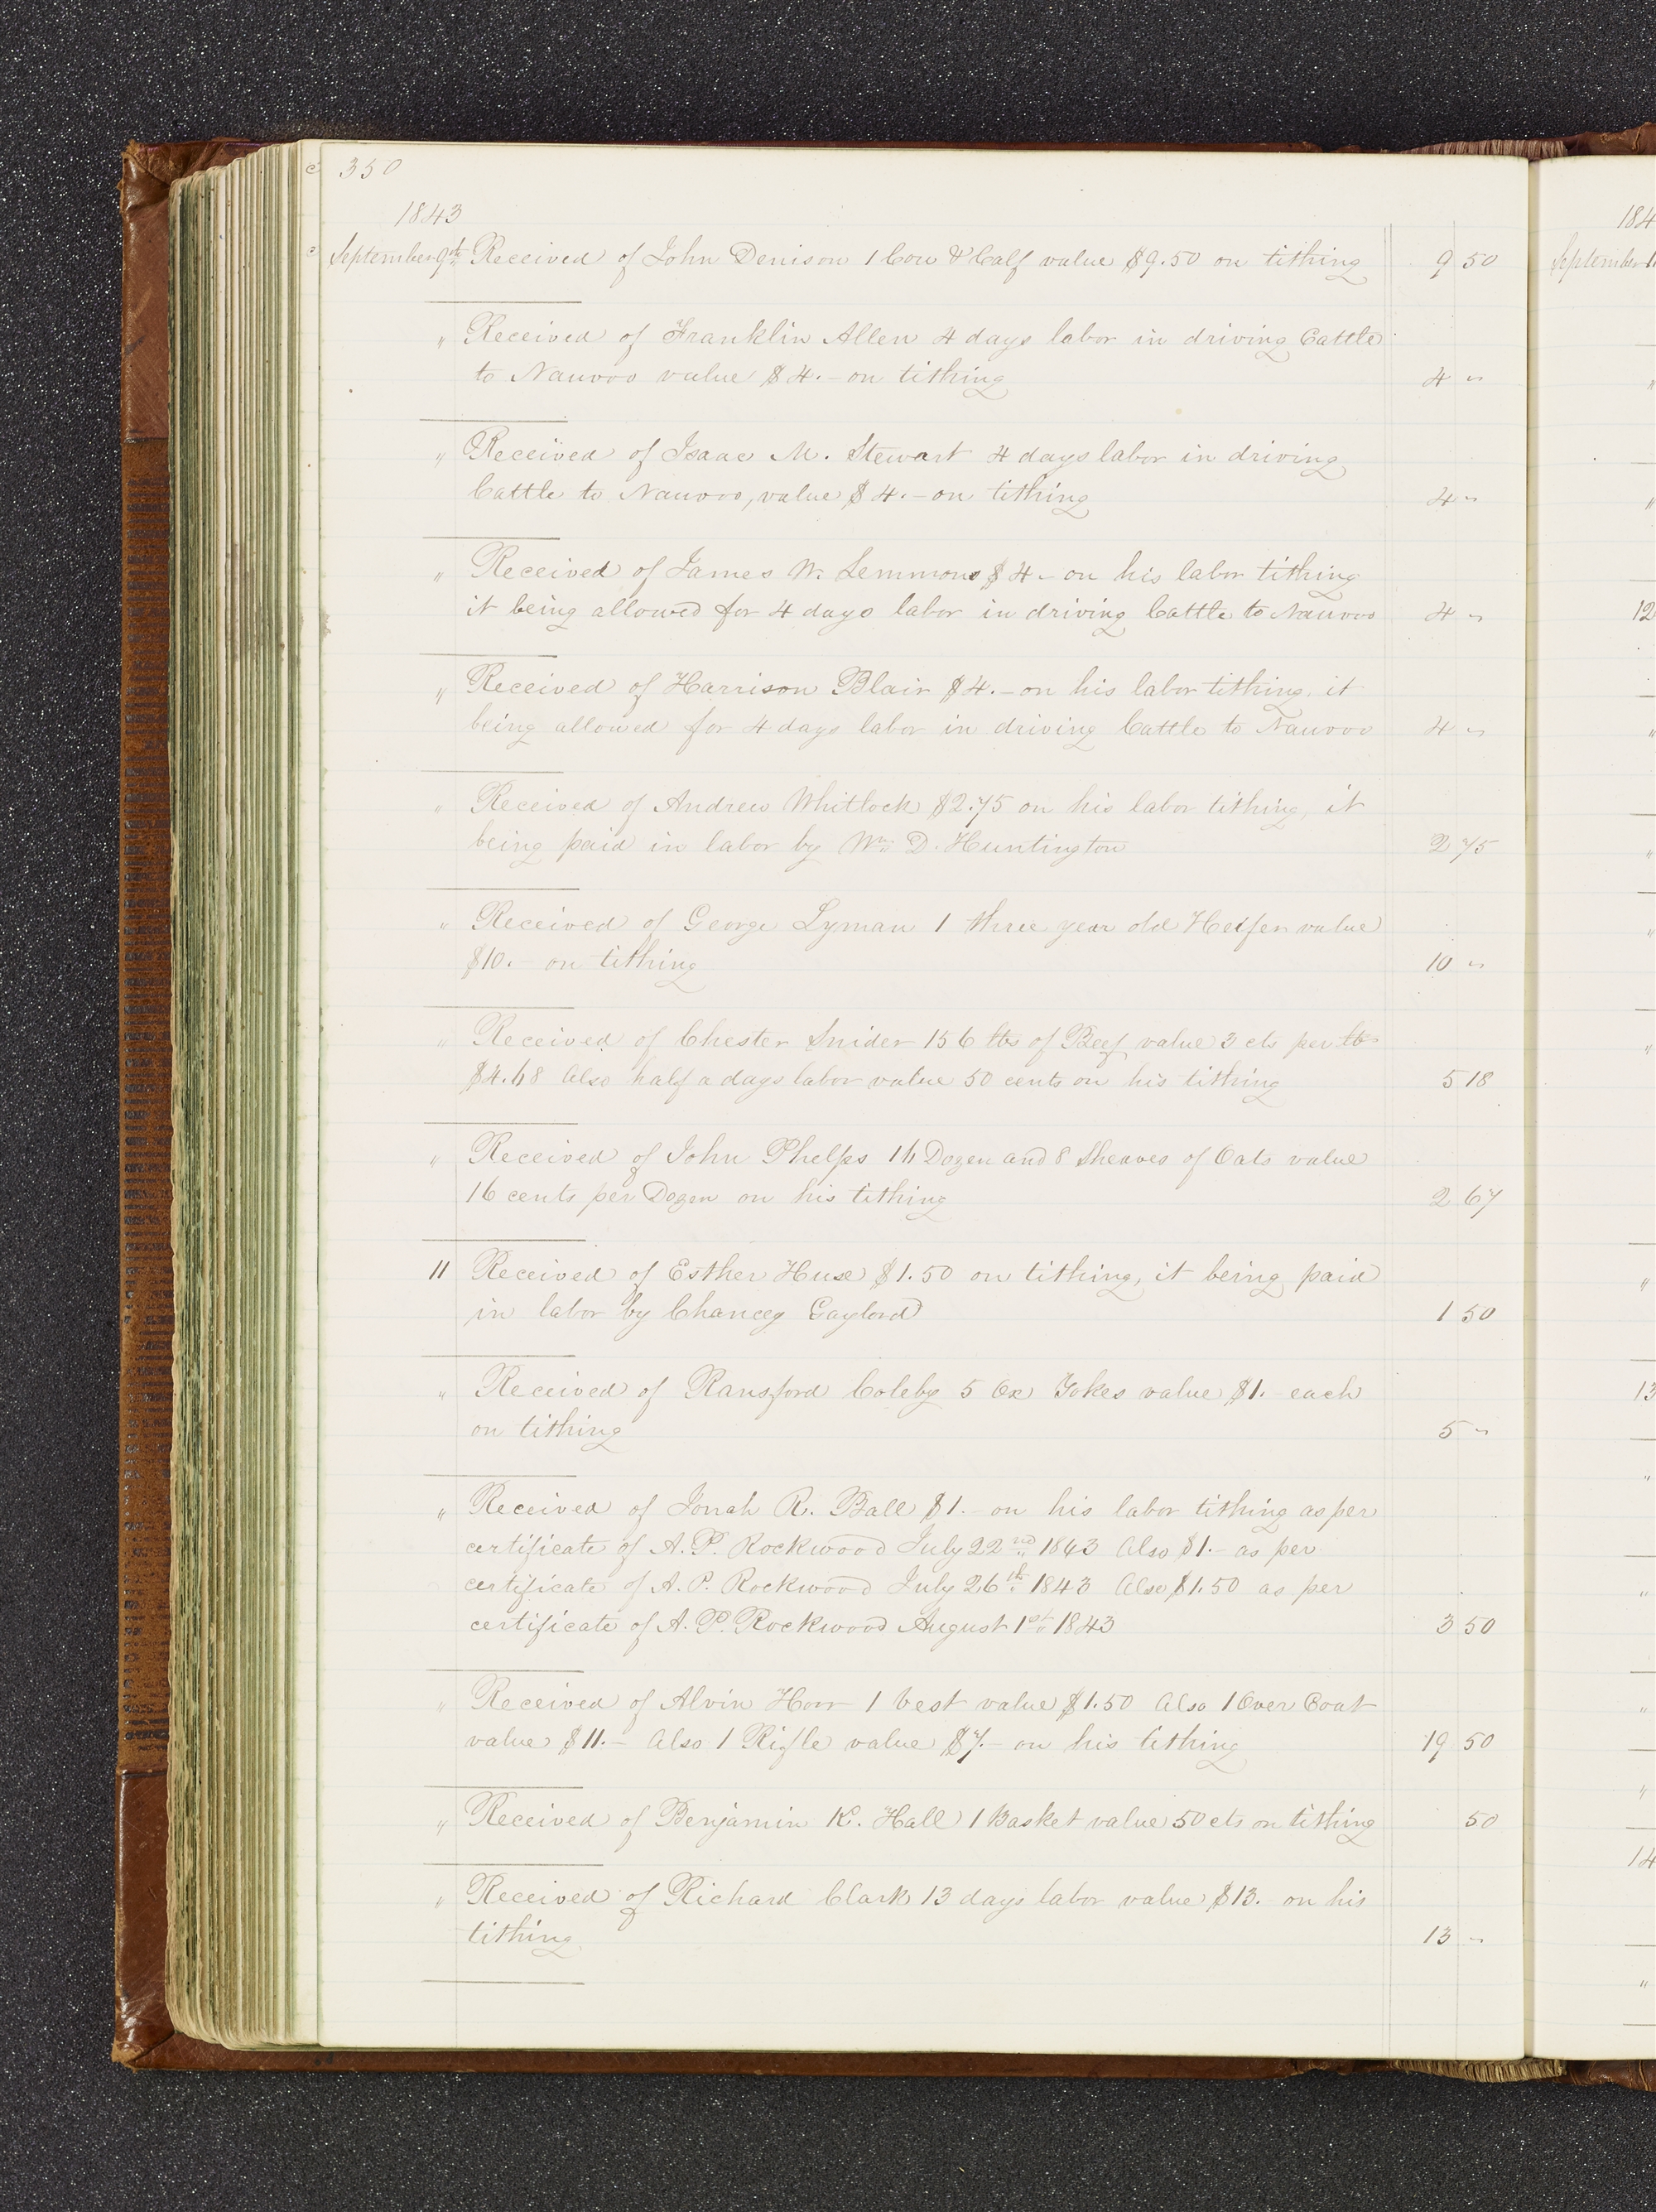 350
1843
September 9th Received of John Denison 1 Cow & Calf value $9.50 on tithing 9 50
" Received of Franklin Allen 4 days labor in driving Cattle
to Nauvoo value $4.- on tithing 4 "
" Received of Isaac M. Stewart 4 days labor in driving
Cattle to Nauvoo, value $4.- on tithing 4 "
" Received of James W. Lemmons $4- on his labor tithing
it being allowed for 4 days labor in driving Cattle to Nauvoo 4 "
" Received of Harrison Blair $4.- on his labor tithing, it
being allowed for 4 days labor in driving Cattle to Nauvoo 4 "
" Received of Andrew Whitlock $2.75 on his labor tithing, it
being paid in labor by Wm. D. Huntington 2 75
" Received of George Lyman 1 three year old Heifer value
$10.- on tithing 10 "
" Received of Chester Snider 156 lbs of Beef value 3 cts per lb
$4.68 Also half a days labor value 50 cents on his tithing 5 18
" Received of John Phelps 16 Dozen and 8 Sheaves of Oats value
16 cents per Dozen on his tithing 2 67
11 Received of Esther Huse $1.50 on tithing, it being paid
in labor by Chancey Gaylord 1 50
" Received of Ransford Coleby 5 Ox Yokes value $1.- each
on tithing 5 "
" Received of Jonah R. Ball $1.- on his labor tithing as per
certificate of A. P. Rockwood July 22nd 1843 Also $1.- as per
certificate of A. P. Rockwood July 26th 1843 Also $1.50 as per
certificate of A. P. Rockwood August 1st 1843 3 50
" Received of Alvin Horr 1 Vest value $1.50 Also 1 Over Coat
value $11.- Also 1 Rifle value $7.- on his tithing 19 50
" Received of Benjamin K. Hall 1 Basket value 50 cts on tithing 50
" Received of Richard Clark 13 days labor value $13.- on his
tithing 13 "
184
September 1
"
"
12
"
"
"
"
"
13
"
"
"
"
14
"